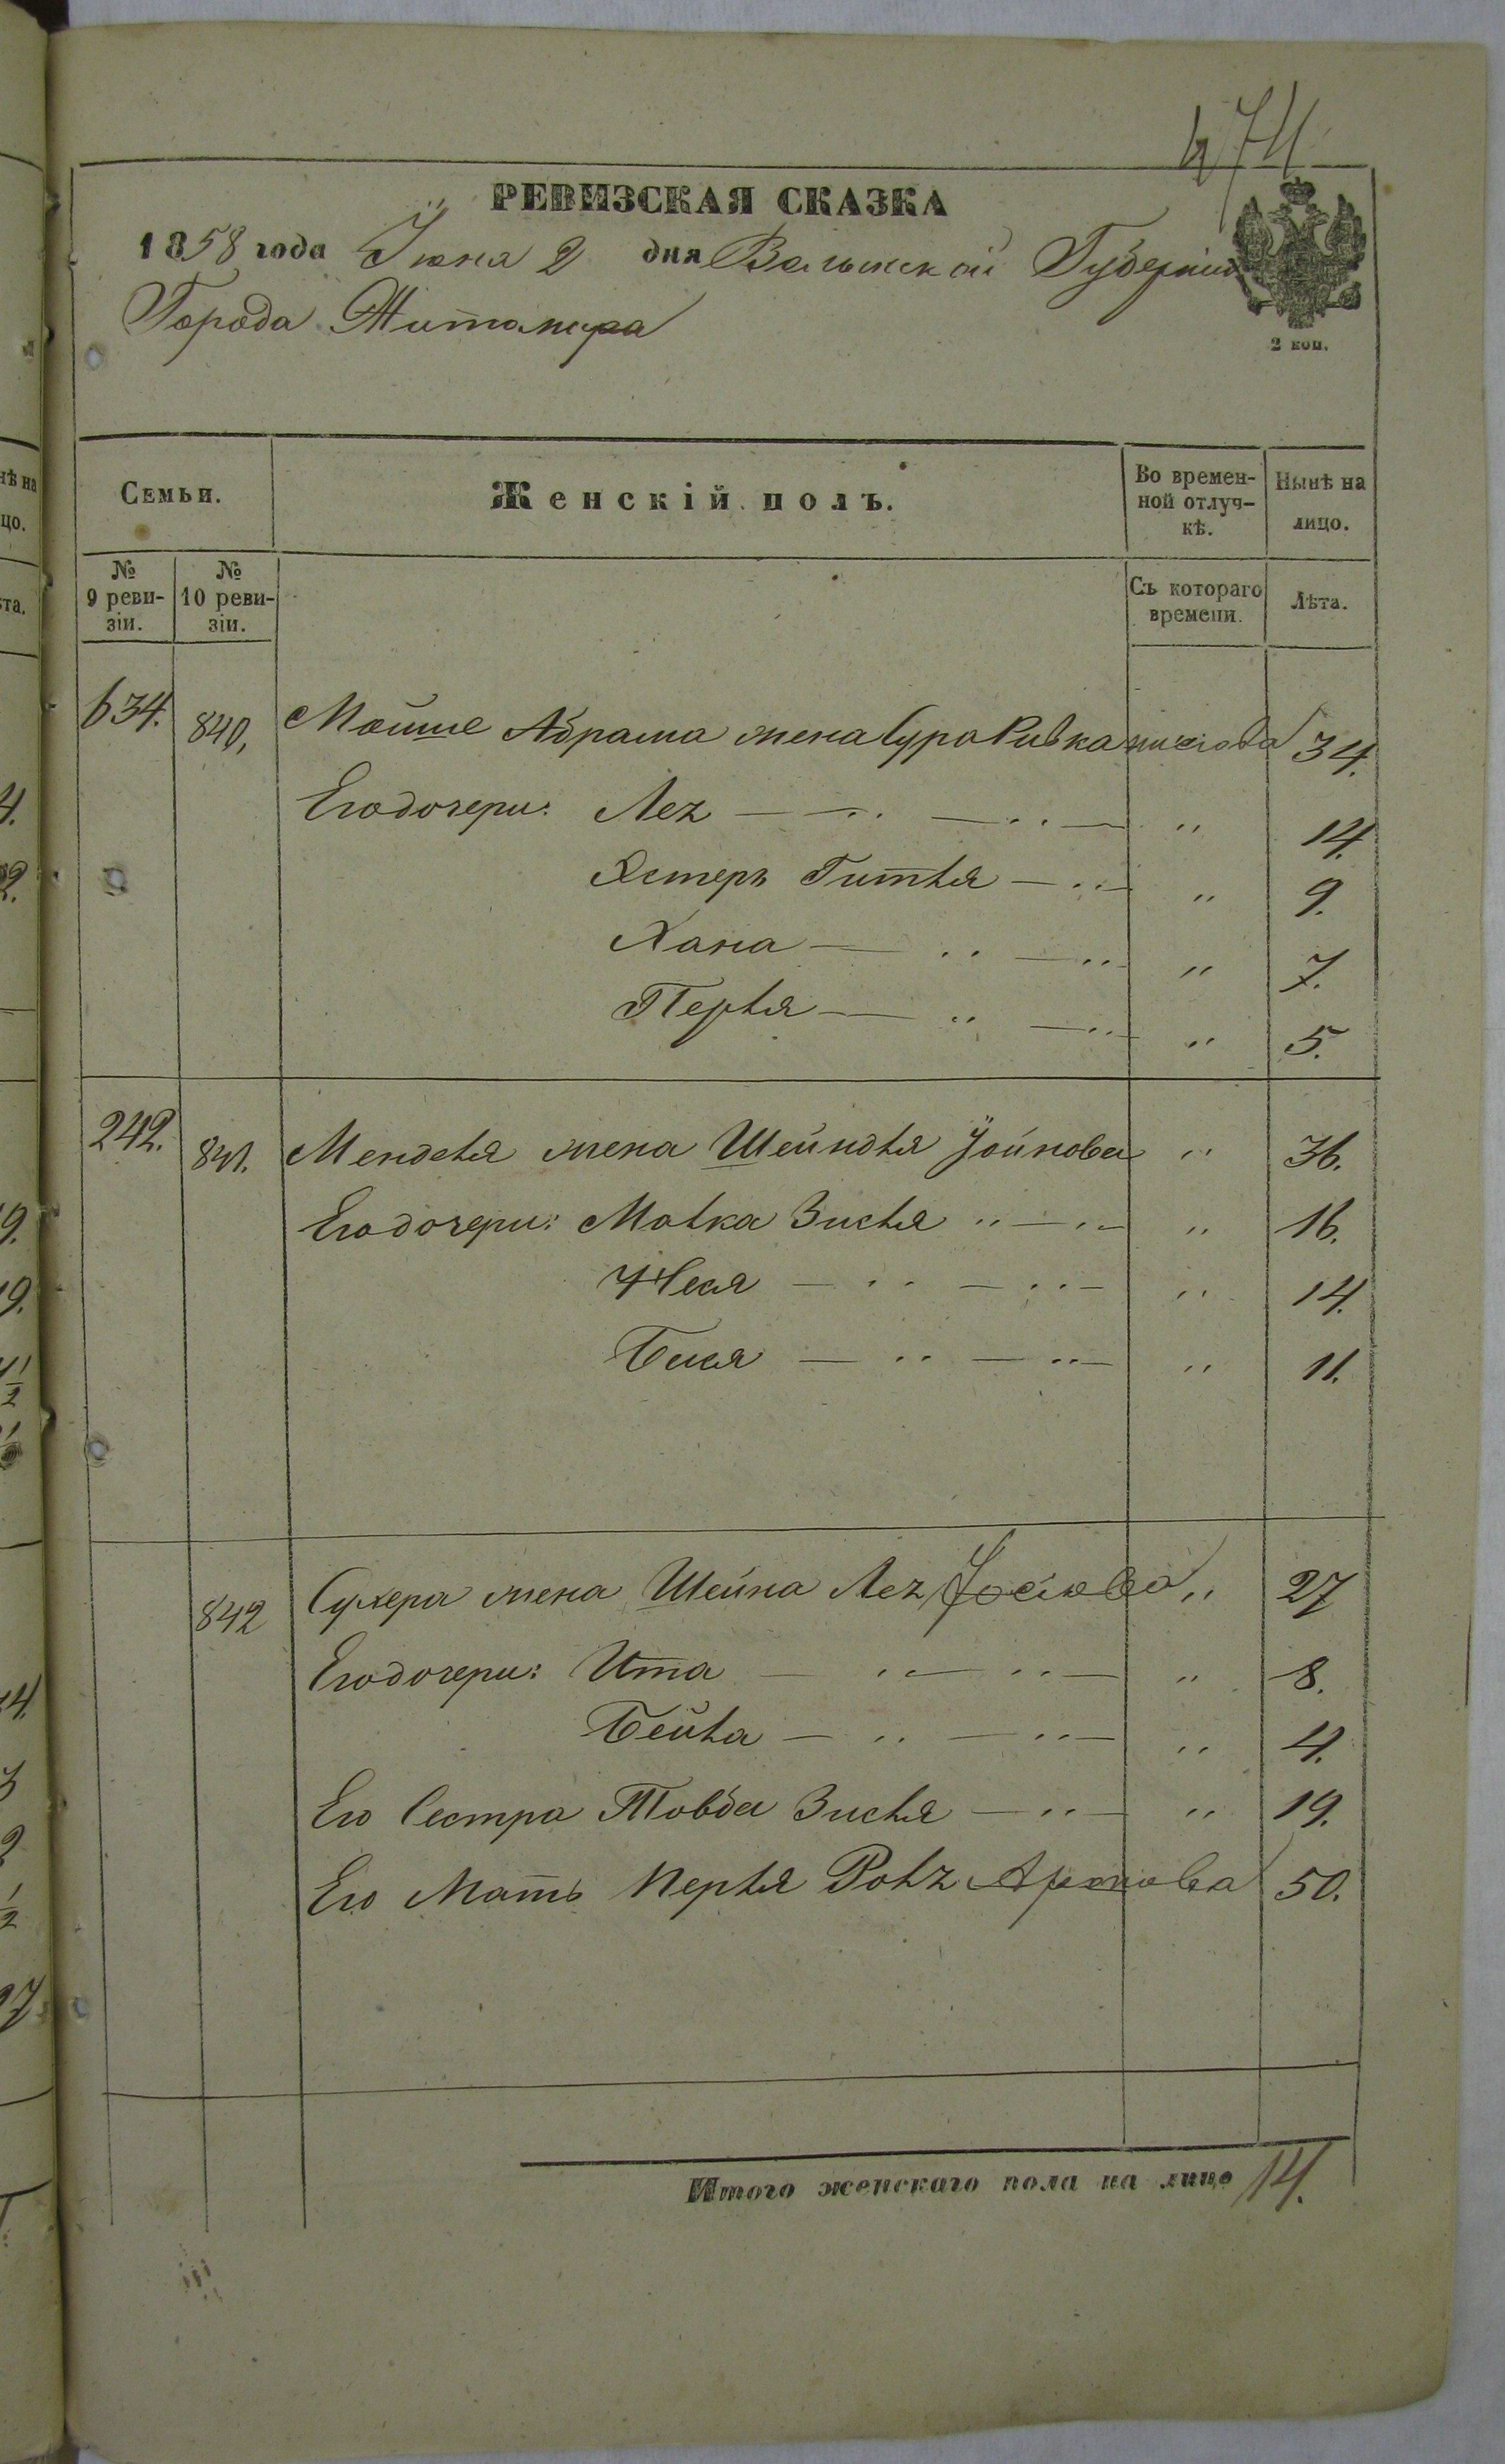 474
РЕВИЗСКАЯ СКАЗКА
1858 года Іюня 2 дня Волынской Губерніи
Города Житомира
2 коп.
Семьи.
Женскій полъ.
Во времен-
ной отлуч-
кѣ.
Нынѣ на
лицо.
№
9 реви-
зіи.
№
10 реви-
зіи.
Съ котораго
времени.
Лѣта.
634. 840. Мошше Абрама жена Сура Ривка 34.
Его дочери: Лея — " — " — " 14.
Эстеръ Гитля — " — " 9.
Хана — " — " — " 7.
Перля — " — " — " 5.
242. 841. Менделя жена Шейндля Іойнова " 36.
Его дочери: Малка Зисля " — " — " 16.
Неся — " — " — " 14.
Бася — " — " — " 11.
842 Сухера жена Шейна Лея Іосіова " 27
Его дочери: Ита — " — " — " 8.
Бейла — " — " — " 4.
Его Сестра Товба Зисля — " — " 19.
Его Мать Перля 50.
Итого женскаго пола на лицо 14.